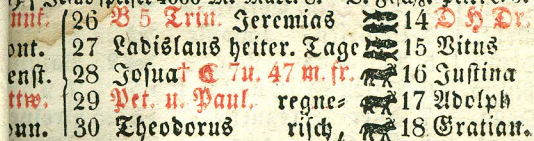 nut. 26 B 5 Trin. Jeremias 14 D H Dr.
ont. 27 Ladislaus heiter. Tage 15 Vitus
enst. 28 Josua† ☾ 7u. 47 m. fr. 16 Justina
ttw. 29 Pet. u. Paul. regne⸗ 17 Adolph
un. 30 Theodorus risch, 18 Gratian.